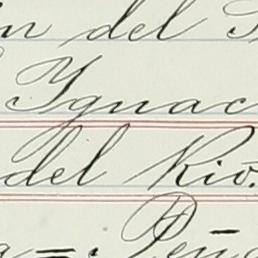 in del
Ygnac
del Rio.
a=: Peña